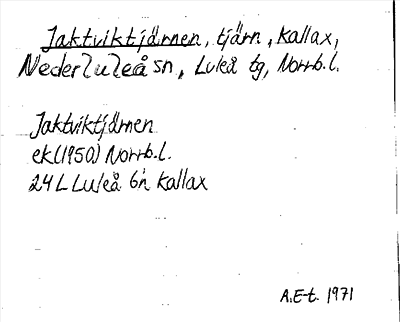 Jaktviktjärnen, tjärn, Kallax,
Nederluleå sn, Luleå tg, Norrb.l.
Jaktviktjärnen
ek(1950) Norrb.l.
24L Luleå 6n Kallax
A.E-t. 1971